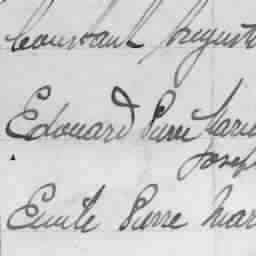 Constant August
Edouard Pierre Marie
Joseph
Emile Pierre Mar